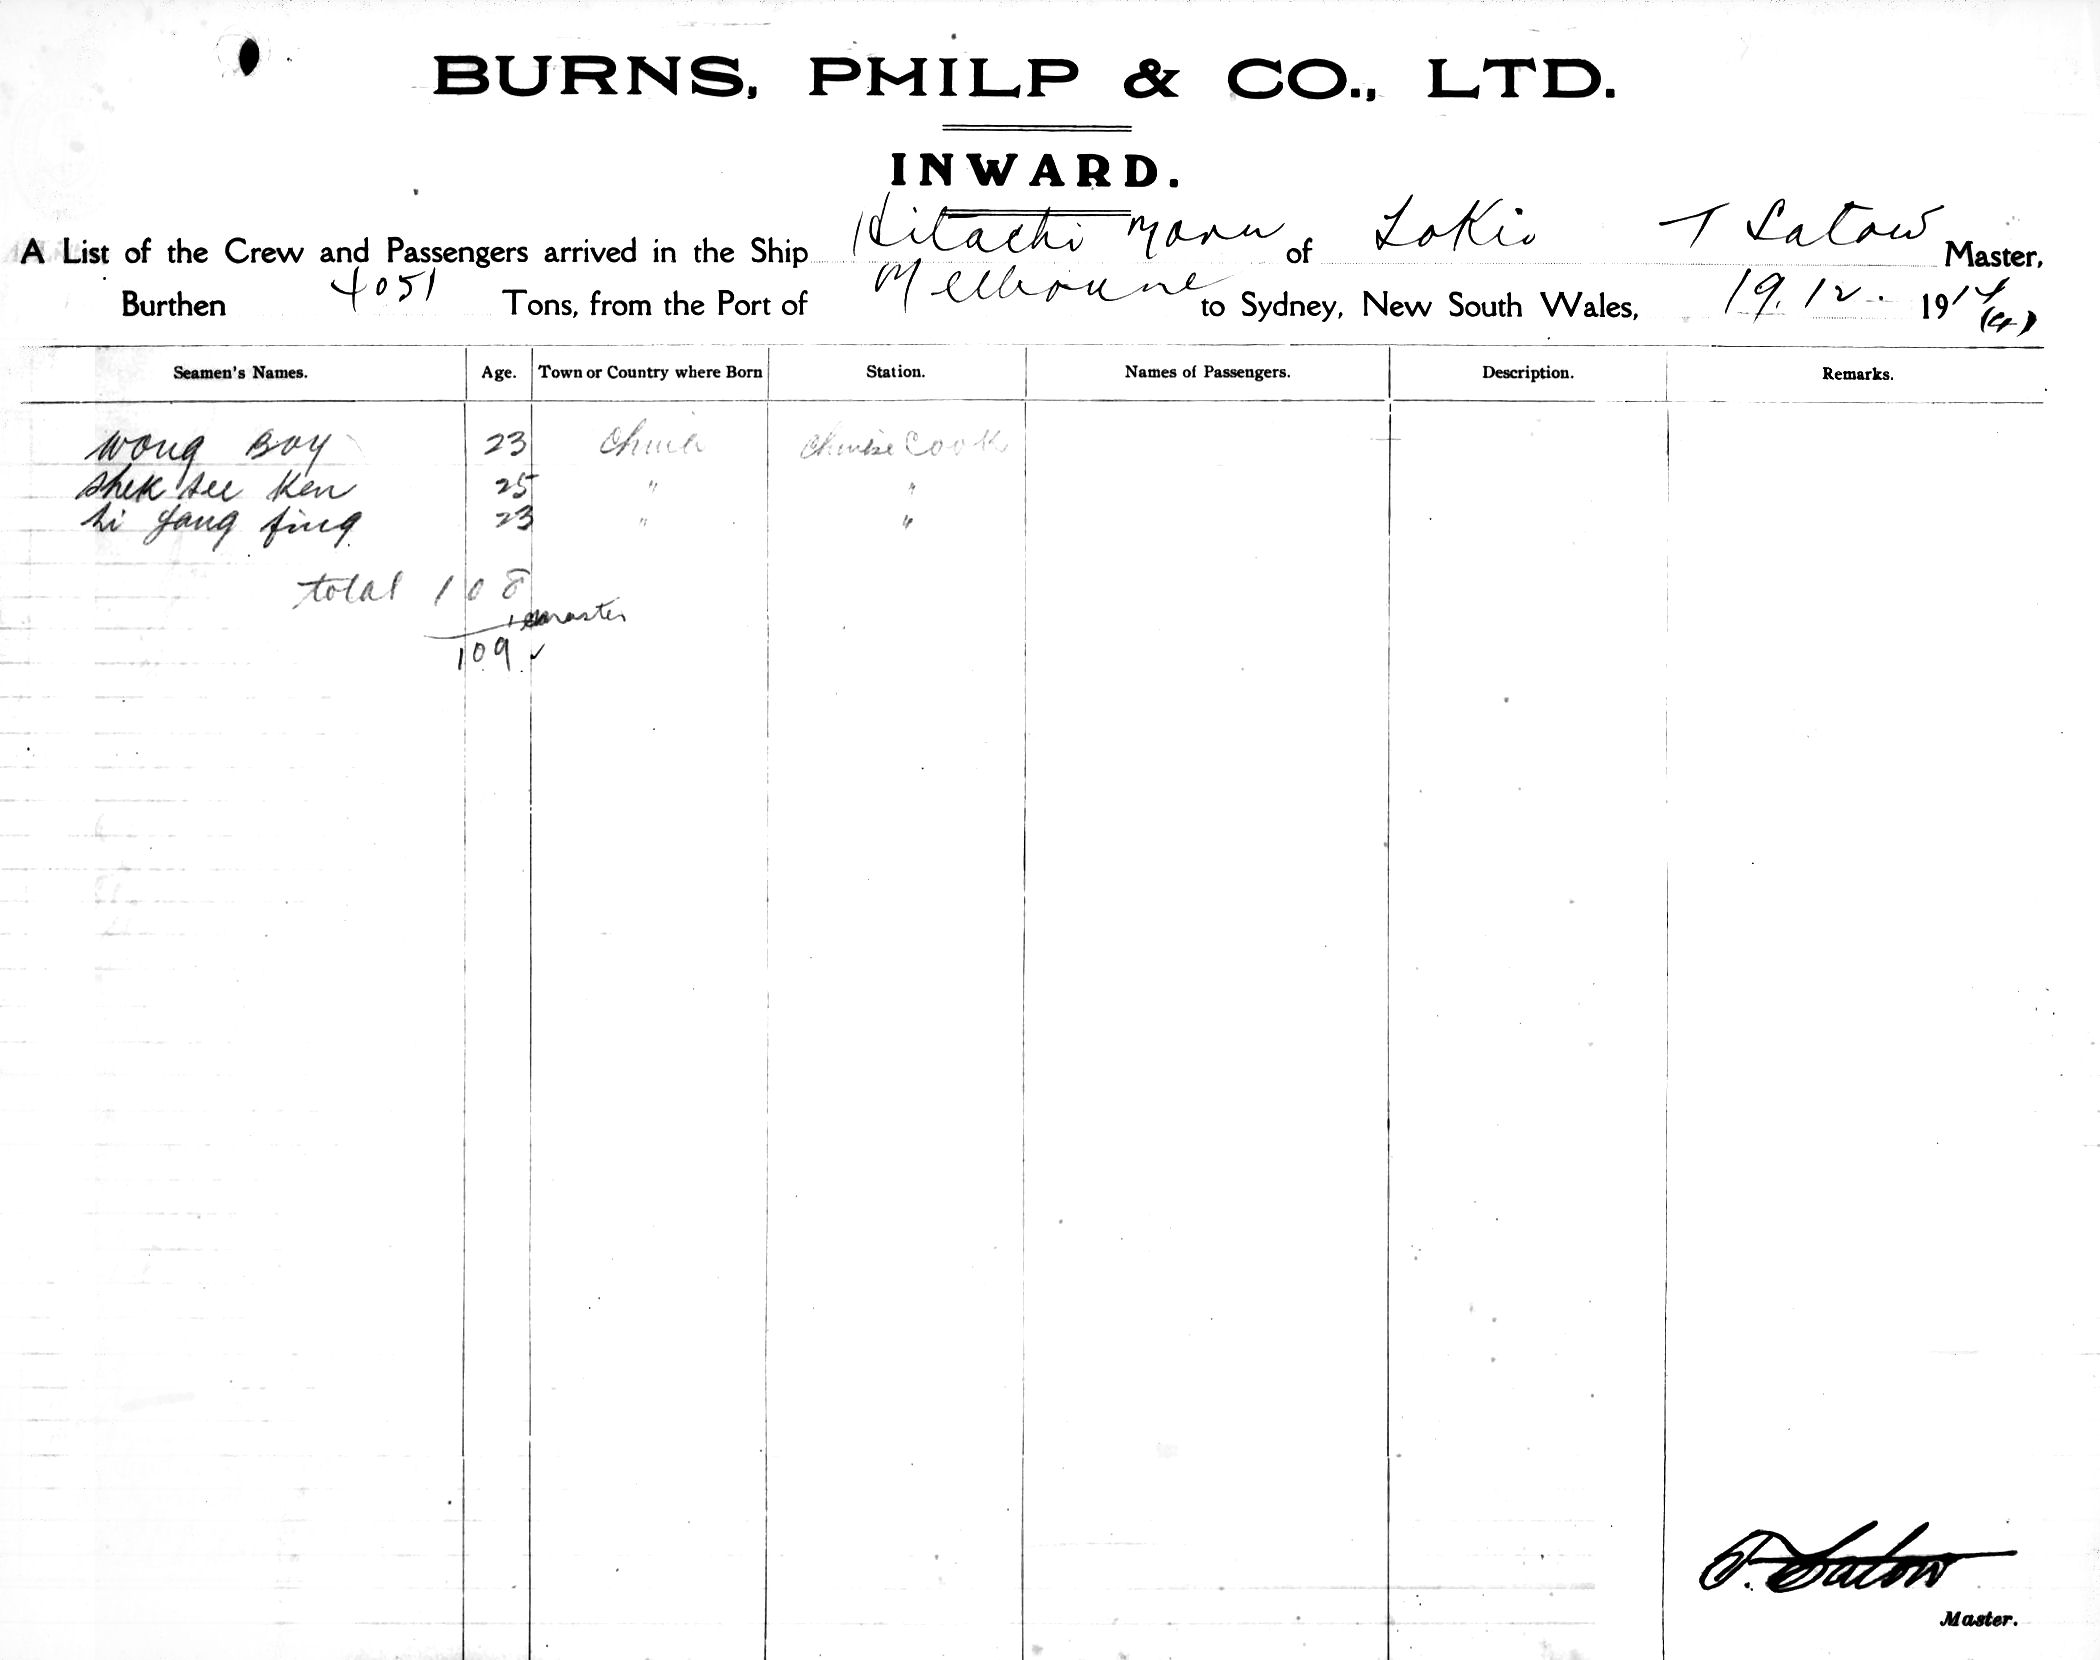 BURNS, PHILP & CO., LTD.
INWARD.
A List of the Crew and Passengers arrived in the Ship Hitachi Maru of Tokio T Satow Master,
Burthen 4051 Tons, from the Port of Melbourne to Sydney, New South Wales, 19.12. 1914 (4)
Seamen's Names. Age. Town or Country where Born Station. Names of Passengers. Description. Remarks.
Wong Boy 23 China Chinese Cook
Shek See Ken 25 " "
Li Yang 23 " "
total 108
1 master
109 ✓
T. Satow
Master.